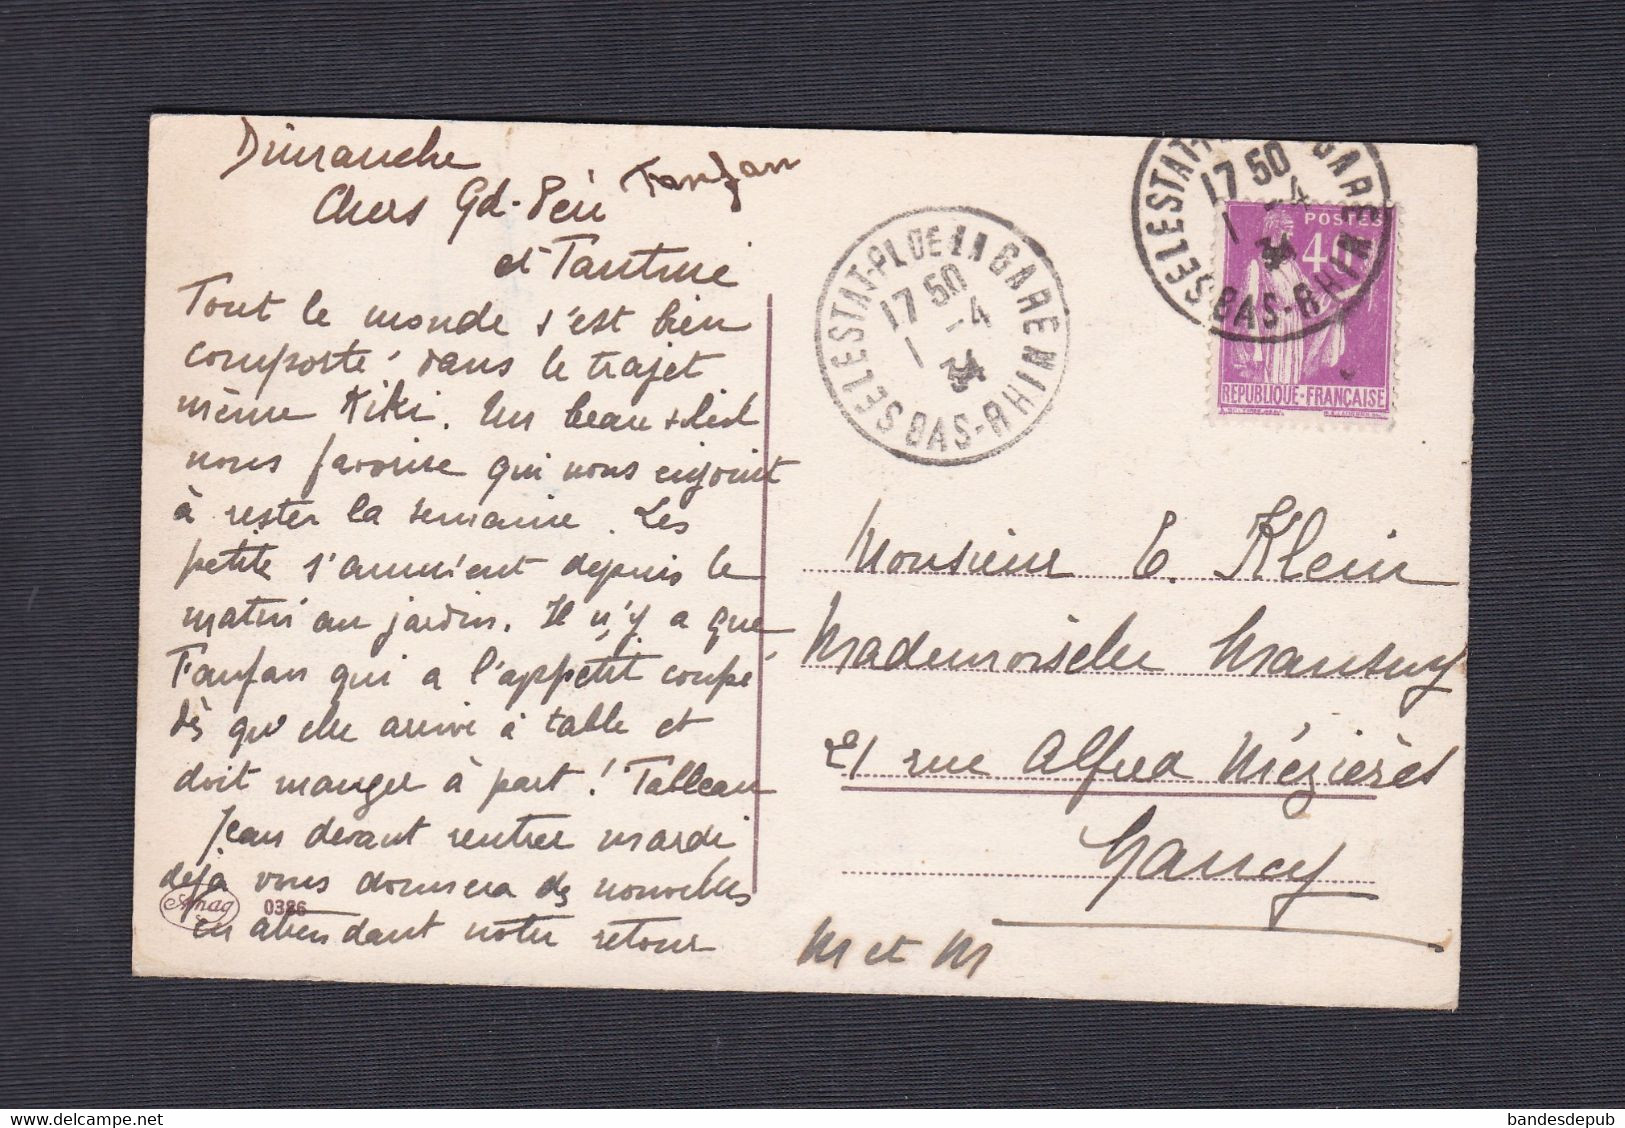 Dimanche
Chers Gd-Père Fanfan
et Tantine
Tout le monde s'est bien
comporté dans le trajet
même Kiki. Un beau soleil
nous favorise qui nous enjoint
à rester la semaine. Les
petits s'amusent depuis le
matin au jardin. Il n'y a que
Fanfan qui a l'appétit coupé
dès qu'elle arrive à table et
doit manger à part ! Tableau
Jean devant rentrer mardi
déjà vous donnera des nouvelles
en attendant notre retour
M et M
Amag 0386
SELESTAT-PL DE LA GARE
17 50
1 -4
34
BAS-RHIN
SELESTAT-PL DE LA GARE
17 50
1 -4
34
BAS-RHIN
POSTES
40
REPUBLIQUE-FRANÇAISE
Monsieur E. Klein
Mademoiselle Mansuy
21 rue Alfred Mézières
Nancy
delcampe.net
bandesdepub